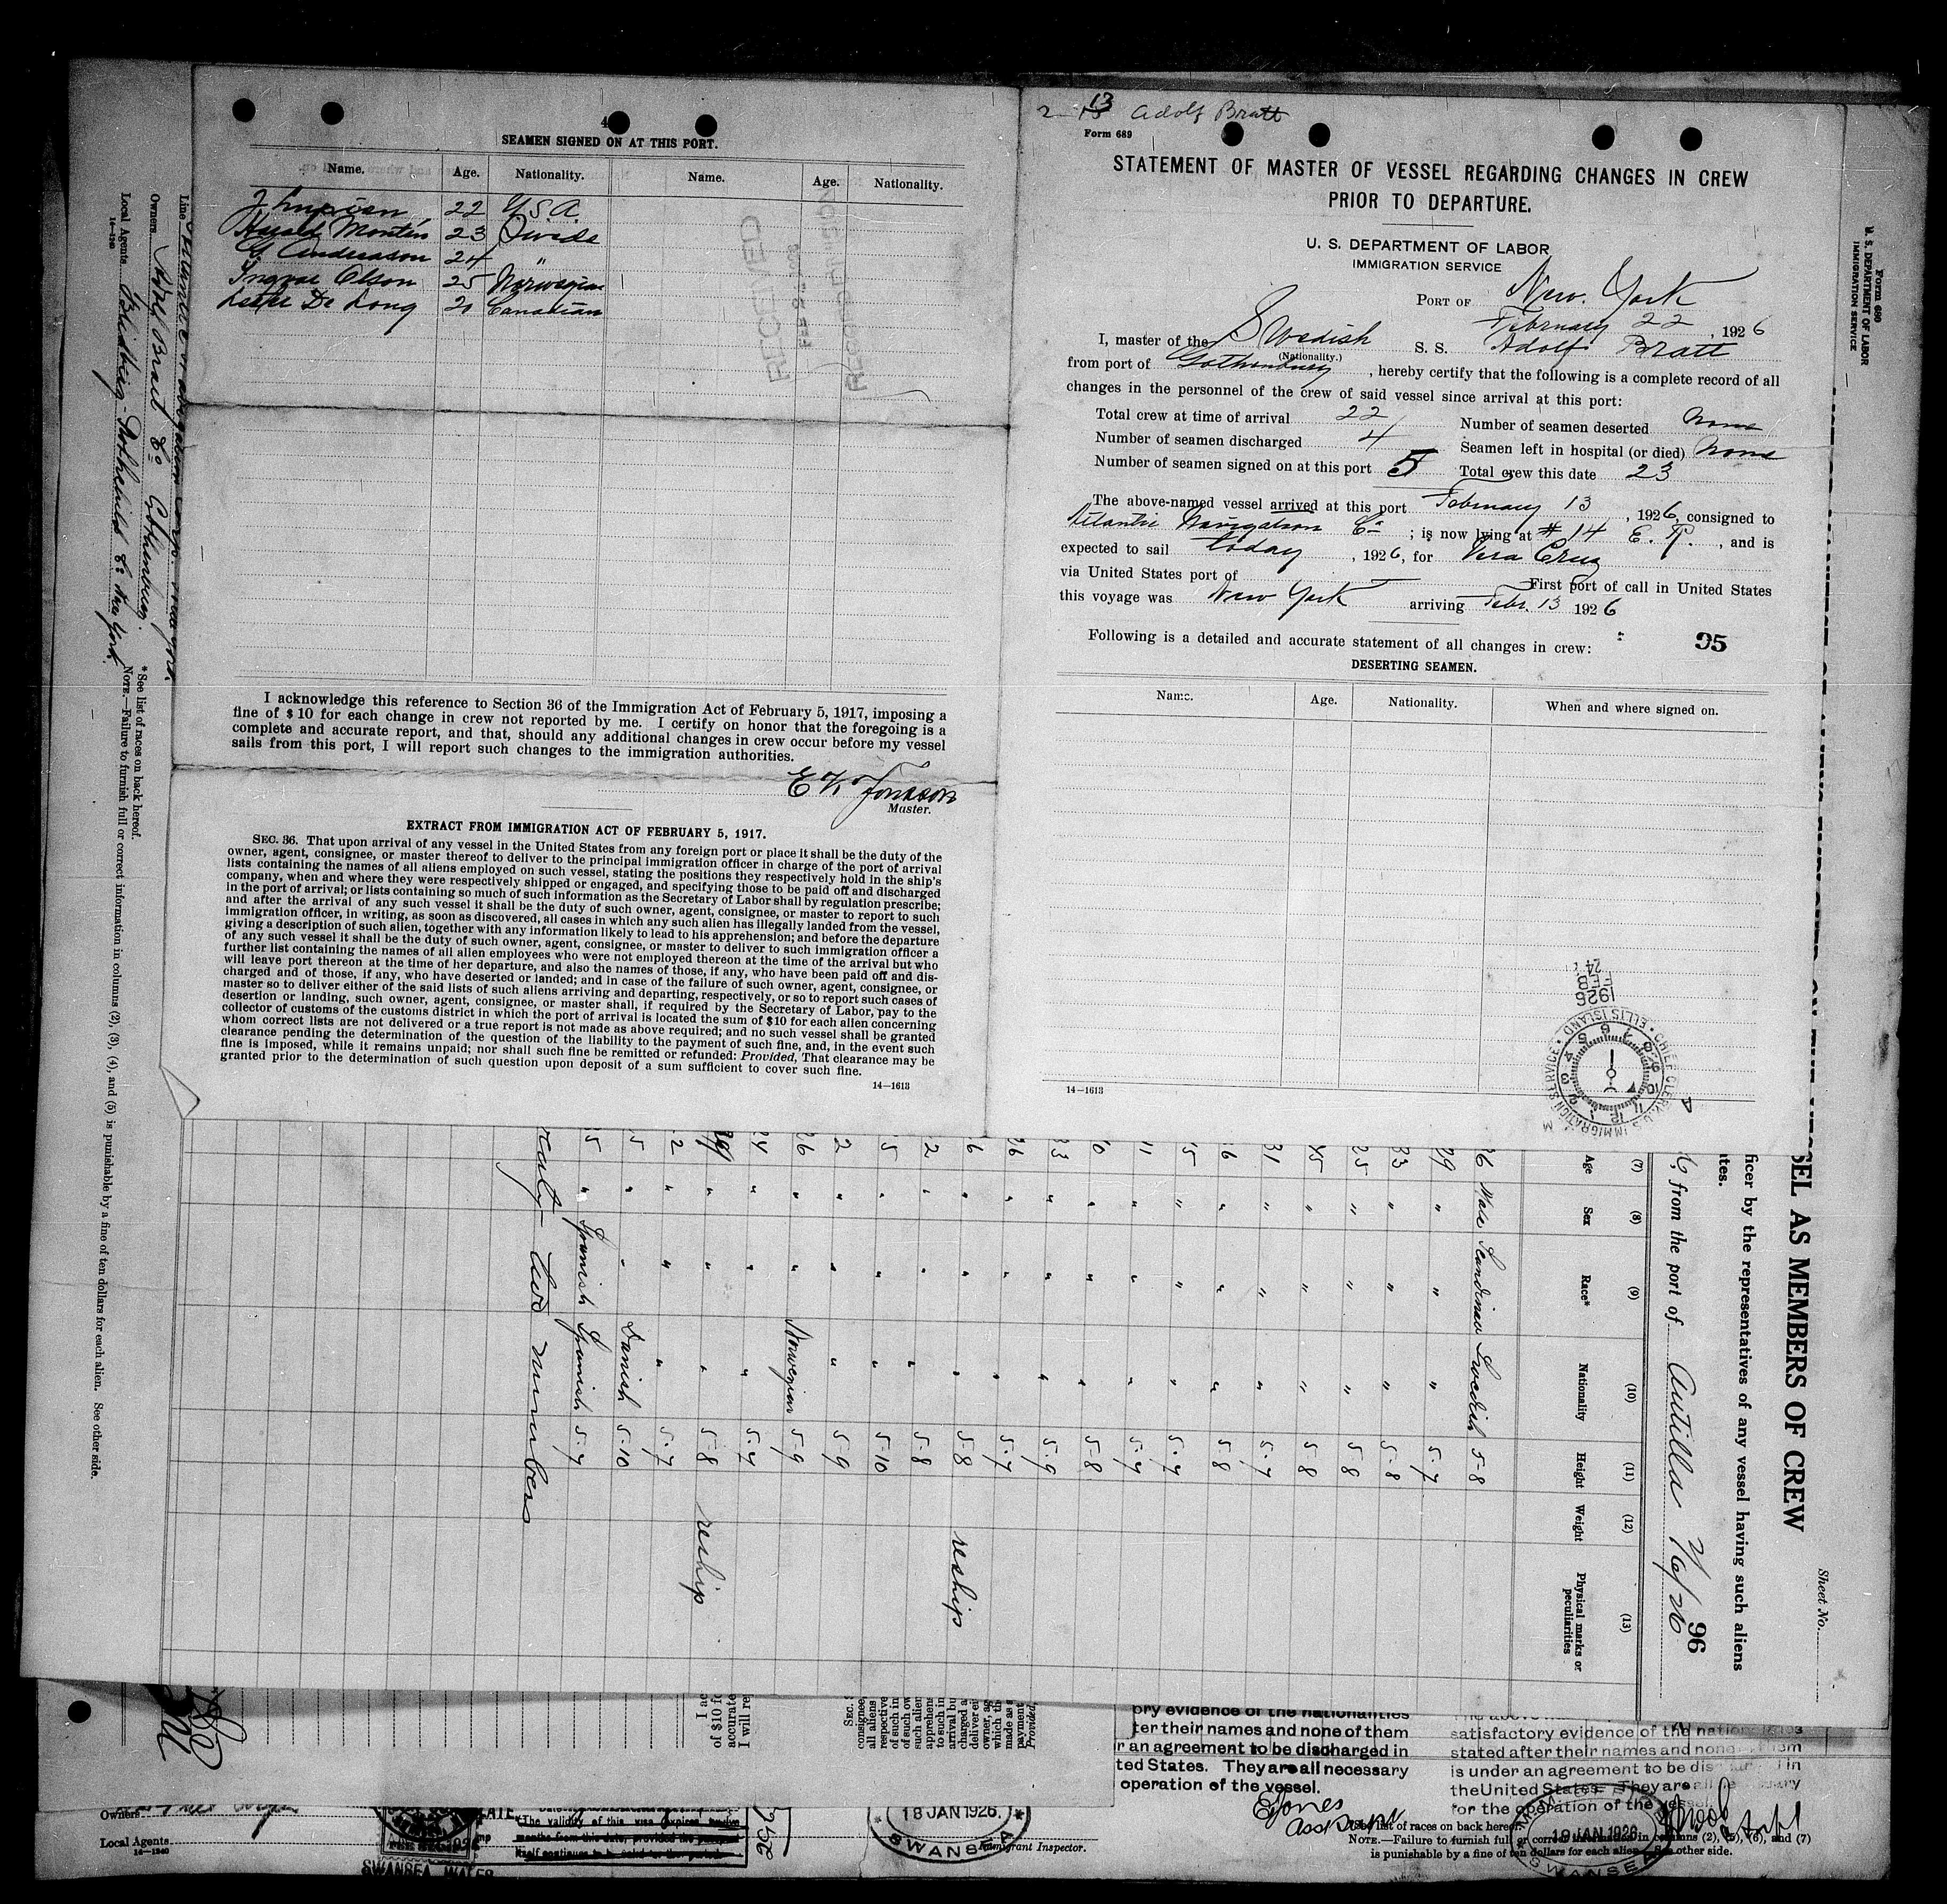 4
SEAMEN SIGNED ON AT THIS PORT.
Name. Age. Nationality. Name. Age. Nationality.
22 U.S.A.
Harald Montin 23 Swede
G. Anderason 24 "
Ingvar Olson 25 Norwegian
Lester De Long 20 Canadian
RECEIVED
I acknowledge this reference to Section 36 of the Immigration Act of February 5, 1917, imposing a
fine of $10 for each change in crew not reported by me. I certify on honor that the foregoing is a
complete and accurate report, and that, should any additional changes in crew occur before my vessel
sails from this port, I will report such changes to the immigration authorities.
E K Jonason
Master.
EXTRACT FROM IMMIGRATION ACT OF FEBRUARY 5, 1917.
SEC. 36. That upon arrival of any vessel in the United States from any foreign port or place it shall be the duty of the
owner, agent, consignee, or master thereof to deliver to the principal immigration officer in charge of the port of arrival
lists containing the names of all aliens employed on such vessel, stating the positions they respectively hold in the ship's
company, when and where they were respectively shipped or engaged, and specifying those to be paid off and discharged
in the port of arrival; or lists containing so much of such information as the Secretary of Labor shall by regulation prescribe;
and after the arrival of any such vessel it shall be the duty of such owner, agent, consignee, or master to report to such
immigration officer, in writing, as soon as discovered, all cases in which any such alien has illegally landed from the vessel,
giving a description of such alien, together with any information likely to lead to his apprehension; and before the departure
of any such vessel it shall be the duty of such owner, agent, consignee, or master to deliver to such immigration officer a
further list containing the names of all alien employees who were not employed thereon at the time of the arrival but who
will leave port thereon at the time of her departure, and also the names of those, if any, who have been paid off and dis-
charged and of those, if any, who have deserted or landed; and in case of the failure of such owner, agent, consignee, or
master so to deliver either of the said lists of such aliens arriving and departing, respectively, or so to report such cases of
desertion or landing, such owner, agent, consignee, or master shall, if required by the Secretary of Labor, pay to the
collector of customs of the customs district in which the port of arrival is located the sum of $10 for each alien concerning
whom correct lists are not delivered or a true report is not made as above required; and no such vessel shall be granted
clearance pending the determination of the question of the liability to the payment of such fine, and, in the event such
fine is imposed, while it remains unpaid; nor shall such fine be remitted or refunded: Provided, That clearance may be
granted prior to the determination of such question upon deposit of a sum sufficient to cover such fine.
14—1613
2 13 Adolf Bratt
Form 689
STATEMENT OF MASTER OF VESSEL REGARDING CHANGES IN CREW
PRIOR TO DEPARTURE.
U. S. DEPARTMENT OF LABOR
IMMIGRATION SERVICE
PORT OF New York
February 22, 1926
I, master of the Swedish S. S. Adolf Bratt
(Nationality.)
from port of Gothenburg, hereby certify that the following is a complete record of all
changes in the personnel of the crew of said vessel since arrival at this port:
Total crew at time of arrival 22 Number of seamen deserted None
Number of seamen discharged 4 Seamen left in hospital (or died) None
Number of seamen signed on at this port 5 Total crew this date 23
The above-named vessel arrived at this port February 13, 1926, consigned to
Atlantic Navigation Co; is now lying at # 14 E. R., and is
expected to sail today, 1926, for Vera Cruz
via United States port of First port of call in United States
this voyage was New York arriving Febr. 13 1926
Following is a detailed and accurate statement of all changes in crew: 95
DESERTING SEAMEN.
Name. Age. Nationality. When and where signed on.
1926 FEB 24
CHIEF CLERK, U.S. IMMIGRATION SERVICE • ELLIS ISLAND •
14—1613
Form 680
U. S. DEPARTMENT OF LABOR
IMMIGRATION SERVICE
Sheet No.
SEL AS MEMBERS OF CREW
ficer by the representatives of any vessel having such aliens
ates.
6, from the port of Antilla 2/6/26
96
(7) Age (8) Sex (9) Race* (10) Nationality (11) Height (12) Weight (13) Physical marks or peculiarities
36 Male Scandinav Swedish 5-8
29 " " " 5-7
33 " " " 5-8
25 " " " 5-8
" " " 5-8
31 " " " 5-7
6 " " " 5-8
5 " " " 5-7
1 " " " 5-7
0 " " " 5-8
33 " " " 5-9
26 " " " 5-7
6 " " " 5-8 reship
2 " " " 5-8
5 " " " 5-10
2 " " " 5-9
26 " " Norwegian 5-9
24 " " " 5-7
" " " 5-8 reship
2 " " " 5-7
5 " " Danish 5-10
5 " Spanish Spanish 5-7
two members
Owners Adolf Bratt & Co Gothenburg.
Local Agents New York
14—1240
*See list of races on back hereof.
NOTE.—Failure to furnish full or correct information in columns (2), (3), (4), and (5) is punishable by a fine of ten dollars for each alien. See other side.
ory evidence of the nationalities
ter their names and none of them
r an agreement to be discharged in
ted States. They are all necessary
operation of the vessel.
satisfactory evidence of the
stated after their names and none
is under an agreement to be
the United States. They are all
for the operation of the vessel.
EJones
Owners
Local Agents
14—1240
SWANSEA WALES
18 JAN 1926
SWANSEA
Immigrant Inspector.
19 JAN 1926
SWANSEA
See list of races on back hereof.
NOTE.—Failure to furnish full or correct information in columns (2), (5), (6), and (7)
is punishable by a fine of ten dollars for each alien. See other side.